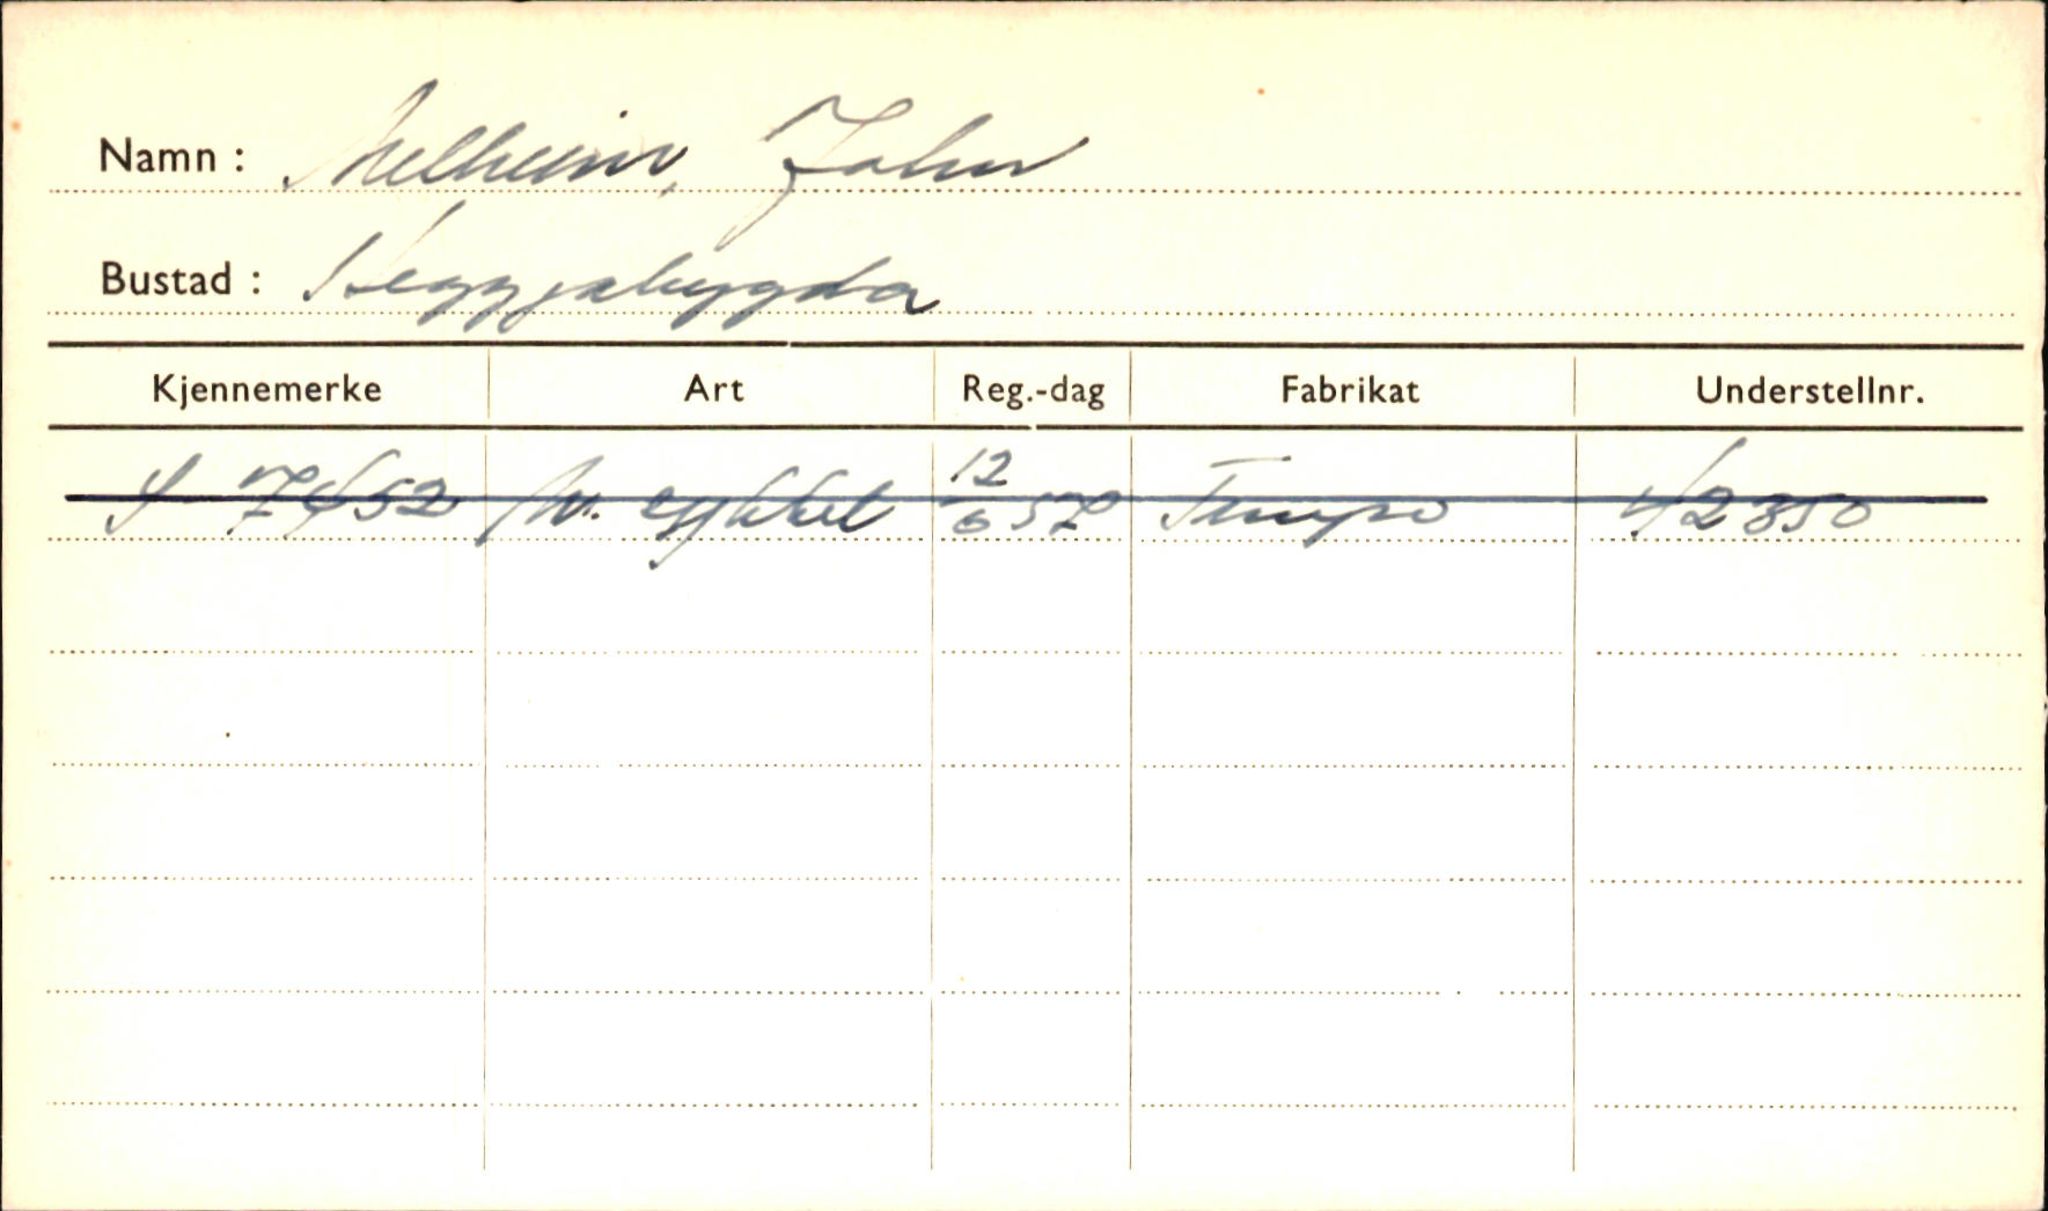 Namn : Melheim, John
Bustad : Heggjabygda
Kjennemerke Art Reg.-dag Fabrikat Understellnr.
S 7452 M. sykkel 12/6 57 Tempo 42350